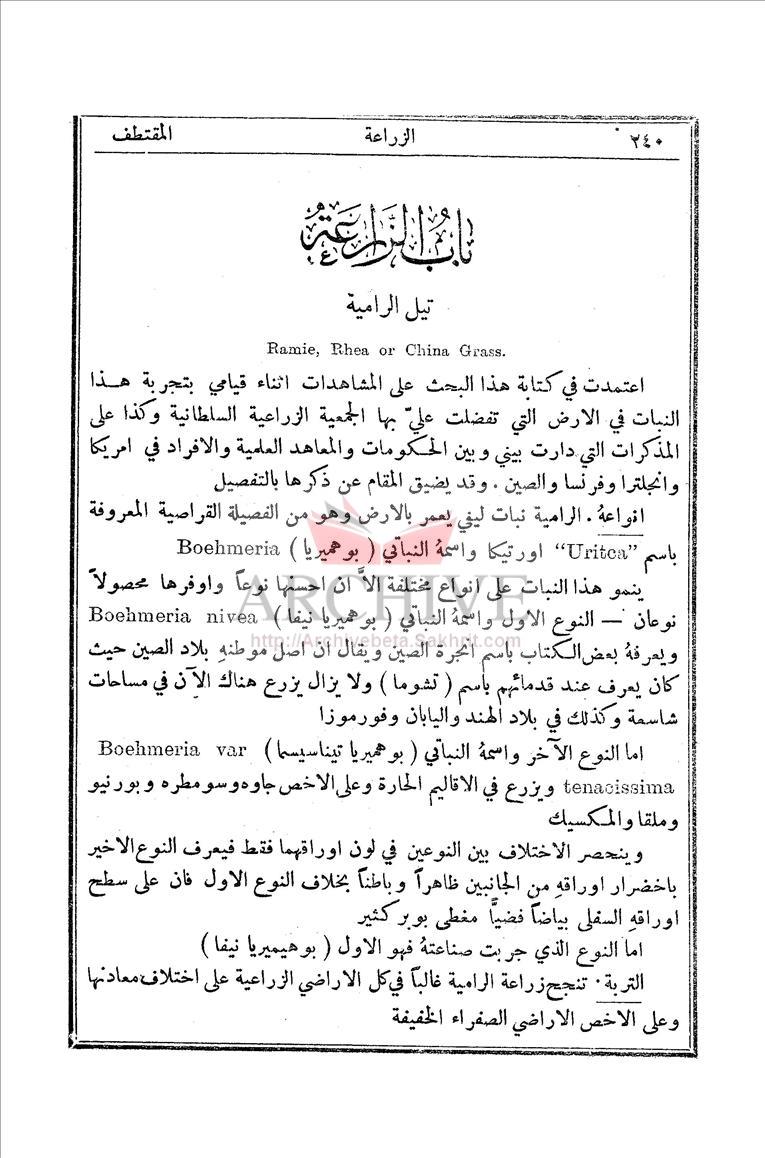 ٢٤٠ الزراعة المقتطف
باب الزراعة
تيل الرامية
Ramie, Rhea or China Grass.
اعتمدت في كتابة هذا البحث على المشاهدات اثناء قيامي بتجربة هـذا
النبات في الارض التي تفضلت عليّ بها الجمعية الزراعية السلطانية وكذا على
المذكرات التي دارت بيني وبين الحكومات والمعاهد العلمية والافراد في امريكا
وانجلترا وفرنسا والصين . وقد يضيق المقام عن ذكرها بالتفصيل
انواعهُ . الرامية نبات ليفي يعمر بالارض وهو من الفصيلة القراصية المعروفة
باسم "Uritca" اورتيكا واسمهُ النباتي ( بوهميريا ) Boehmeria
ينمو هذا النبات على انواع مختلفة الاَّ ان احسنها نوعاً واوفرها محصولاً
نوعان — النوع الاول واسمهُ النباتي ( بوهميريا نيفا ) Boehmeria nivea
ويعرفهُ بعض الكتاب باسم انجرة الصين ويقال ان اصل موطنهِ بلاد الصين حيث
كان يعرف عند قدمائهم باسم ( تشوما ) ولا يزال يزرع هناك الآن في مساحات
شاسعة وكذلك في بلاد الهند واليابان وفورموزا
اما النوع الآخر واسمهُ النباتي ( بوهميريا تيناسيسما ) Boehmeria var
tenacissima ويزرع في الاقاليم الحارة وعلى الاخص جاوه وسومطره وبورنيو
وملقا والمكسيك
وينحصر الاختلاف بين النوعين في لون اوراقهما فقط فيعرف النوع الاخير
باخضرار اوراقهِ من الجانبين ظاهراً وباطناً بخلاف النوع الاول فان على سطح
اوراقهِ السفلى بياضاً فضيًّا مغطى بوبر كثير
اما النوع الذي جربت صناعتهُ فهو الاول ( بوهيميريا نيفا )
التربة . تنجح زراعة الرامية غالباً في كل الاراضي الزراعية على اختلاف معادنها
وعلى الاخص الاراضي الصفراء الخفيفة
ARCHIVE
http://Archivebeta.Sakhrit.com